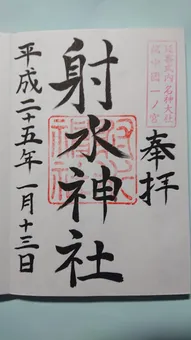 延喜式内名神大社
越中國一ノ宮
奉拝
射水神社
平成二十五年一月十三日